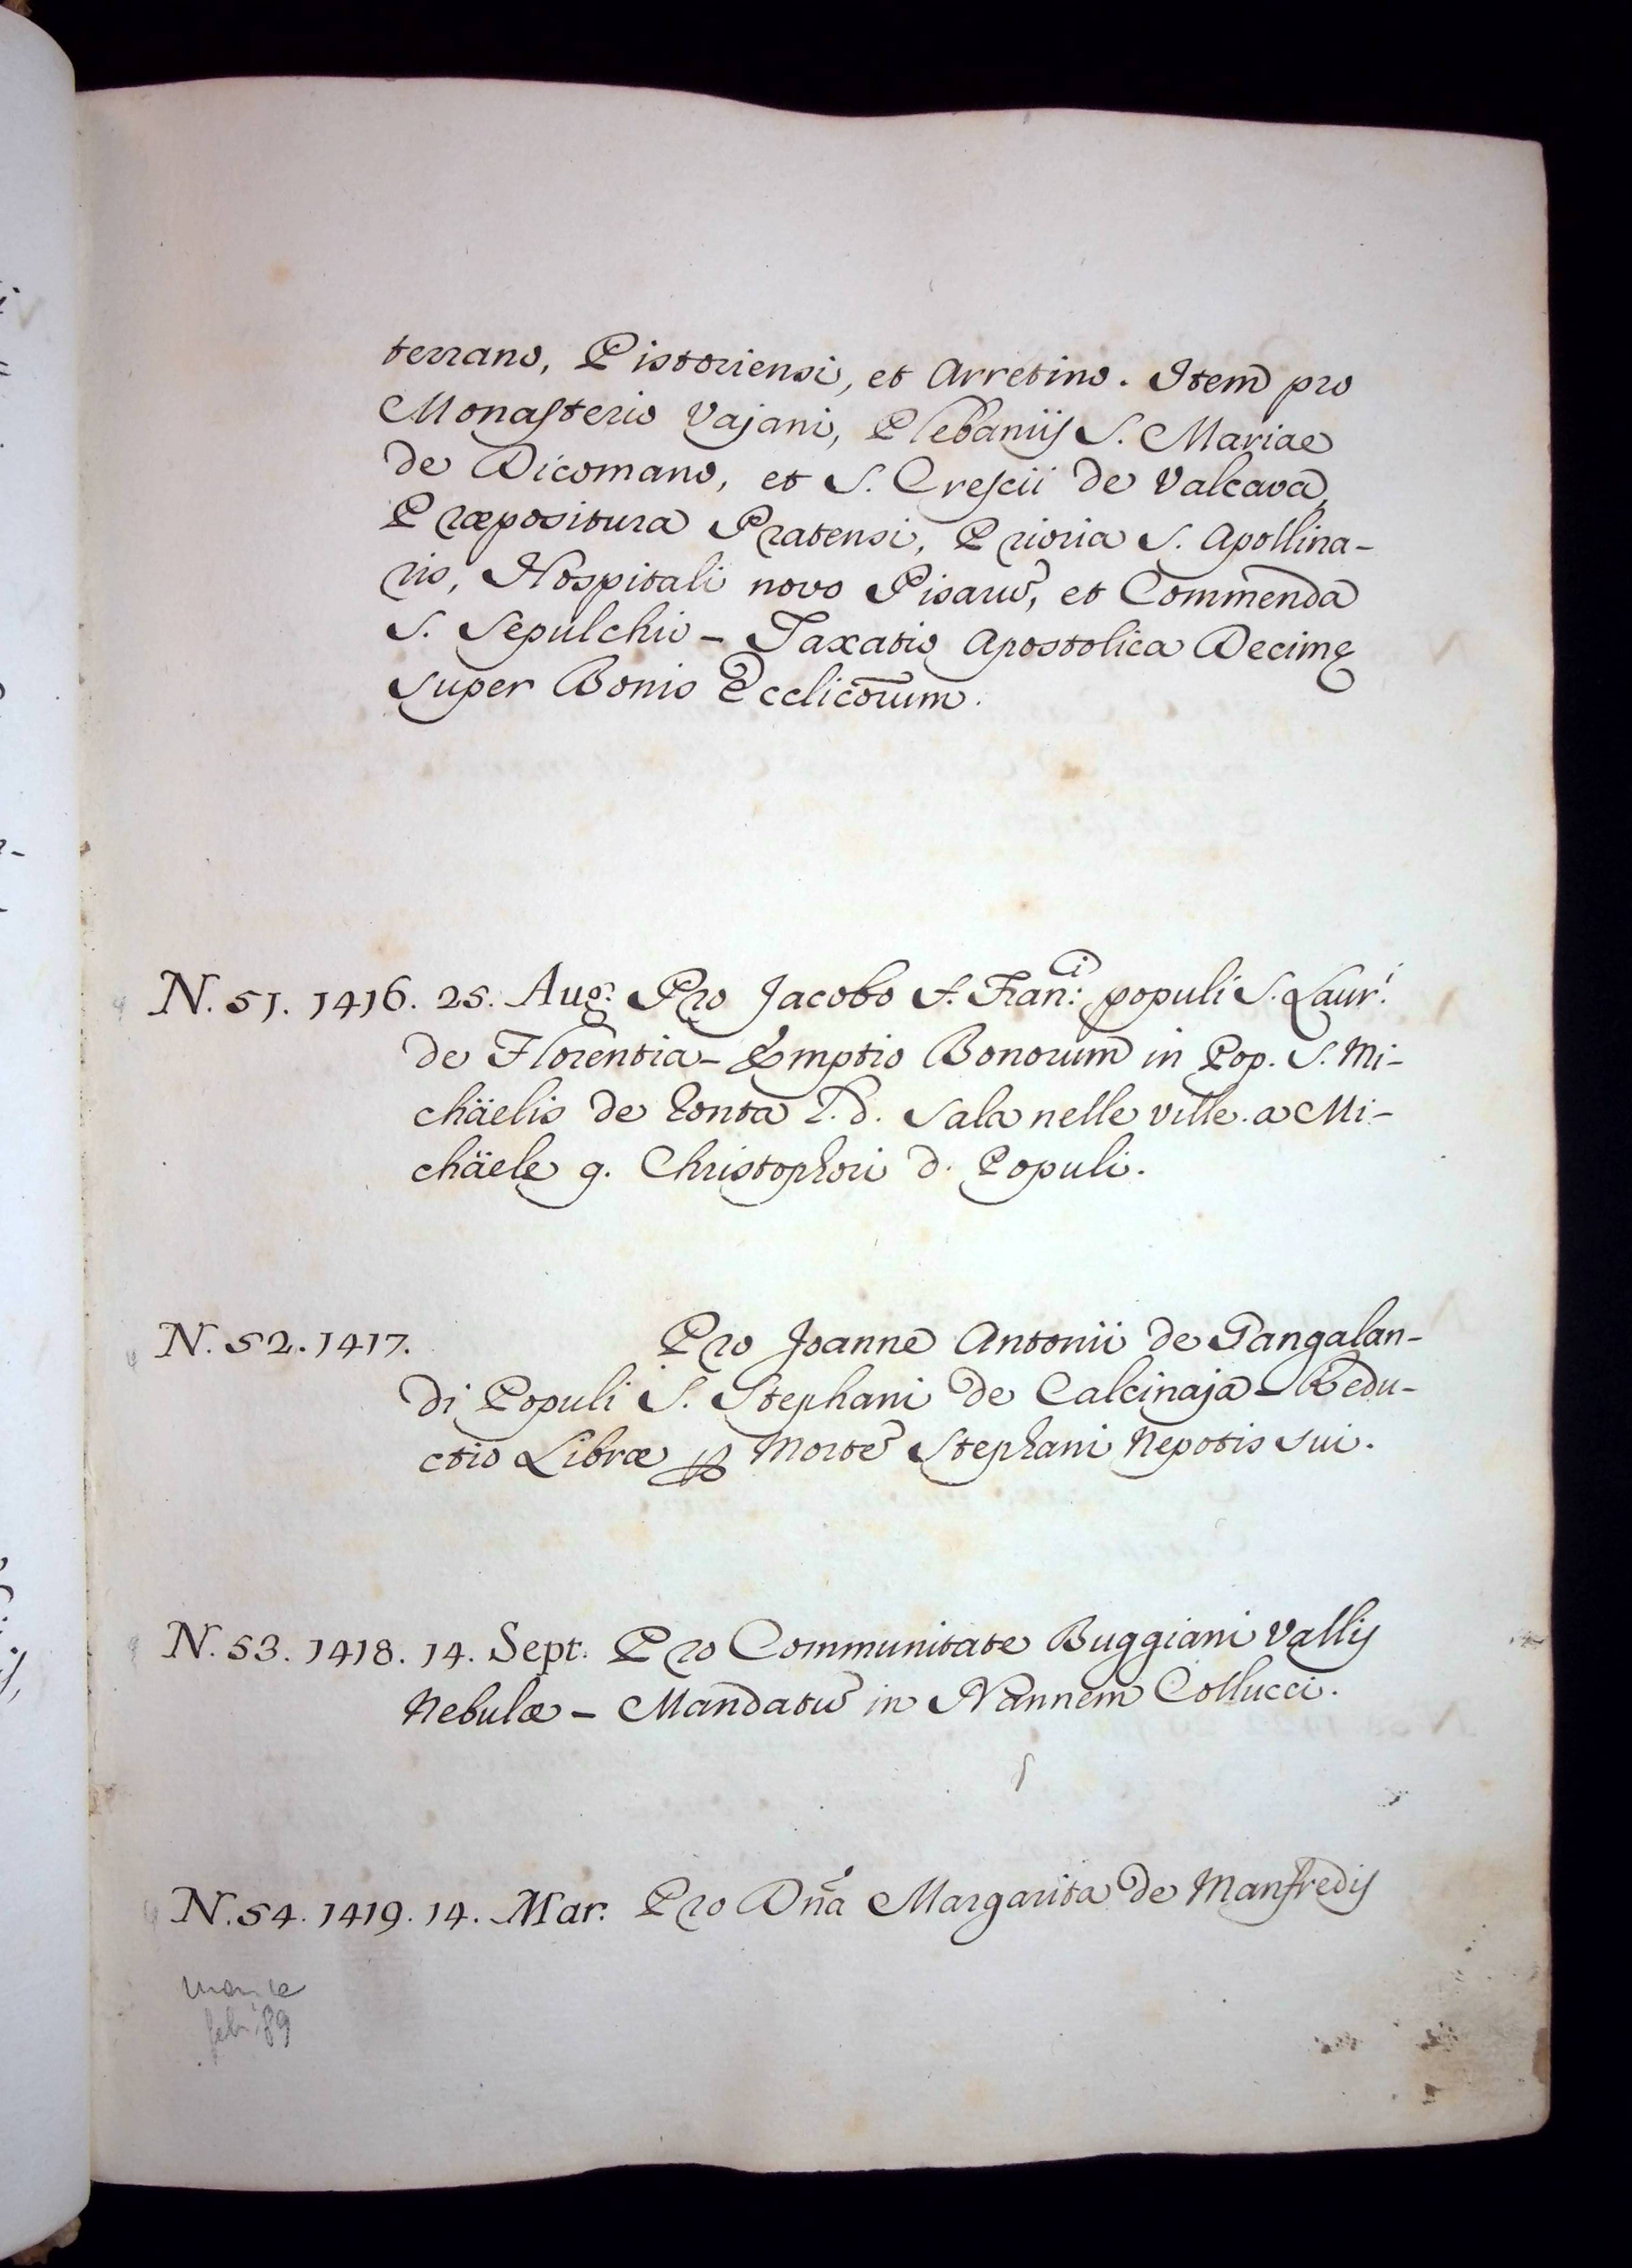 terrano, Pistoriensi, et Arretino. Item pro
Monasterio Vajani, Plebaniis S. Mariae
de Dicomano, et S. Crescii de Valcava,
Præpositura Pratensi, Prioria S. Apollina-
ris, Hospitali novo Pisarũ, et Commenda
S. Sepulchri - Taxatio Apostolica Decimę
super Bonis Ecclicorum.
N. 51. 1416. 25. Aug. Pro Jacobo f. Fran:ci populi S. Laur.i
de Florentia - Emptio Bonorum in Pop. S. Mi-
chäelis de Conta l. d. Sala nelle ville. a Mi-
chäele q. Christophori d. Populi.
N. 52. 1417. Pro Joanne Antonii de Gangalan-
di Populi S. Stephani de Calcinaja - Redu-
ctio Libræ ꝑ Mortẽ Stephani Nepotis sui.
N. 53. 1418. 14. Sept. Pro Communitate Buggiani Vallis
Nebulæ - Mandatũ in Nannem Collucci.
N. 54. 1419. 14. Mar. Pro Dña Margarita de Manfredis
feb. '89